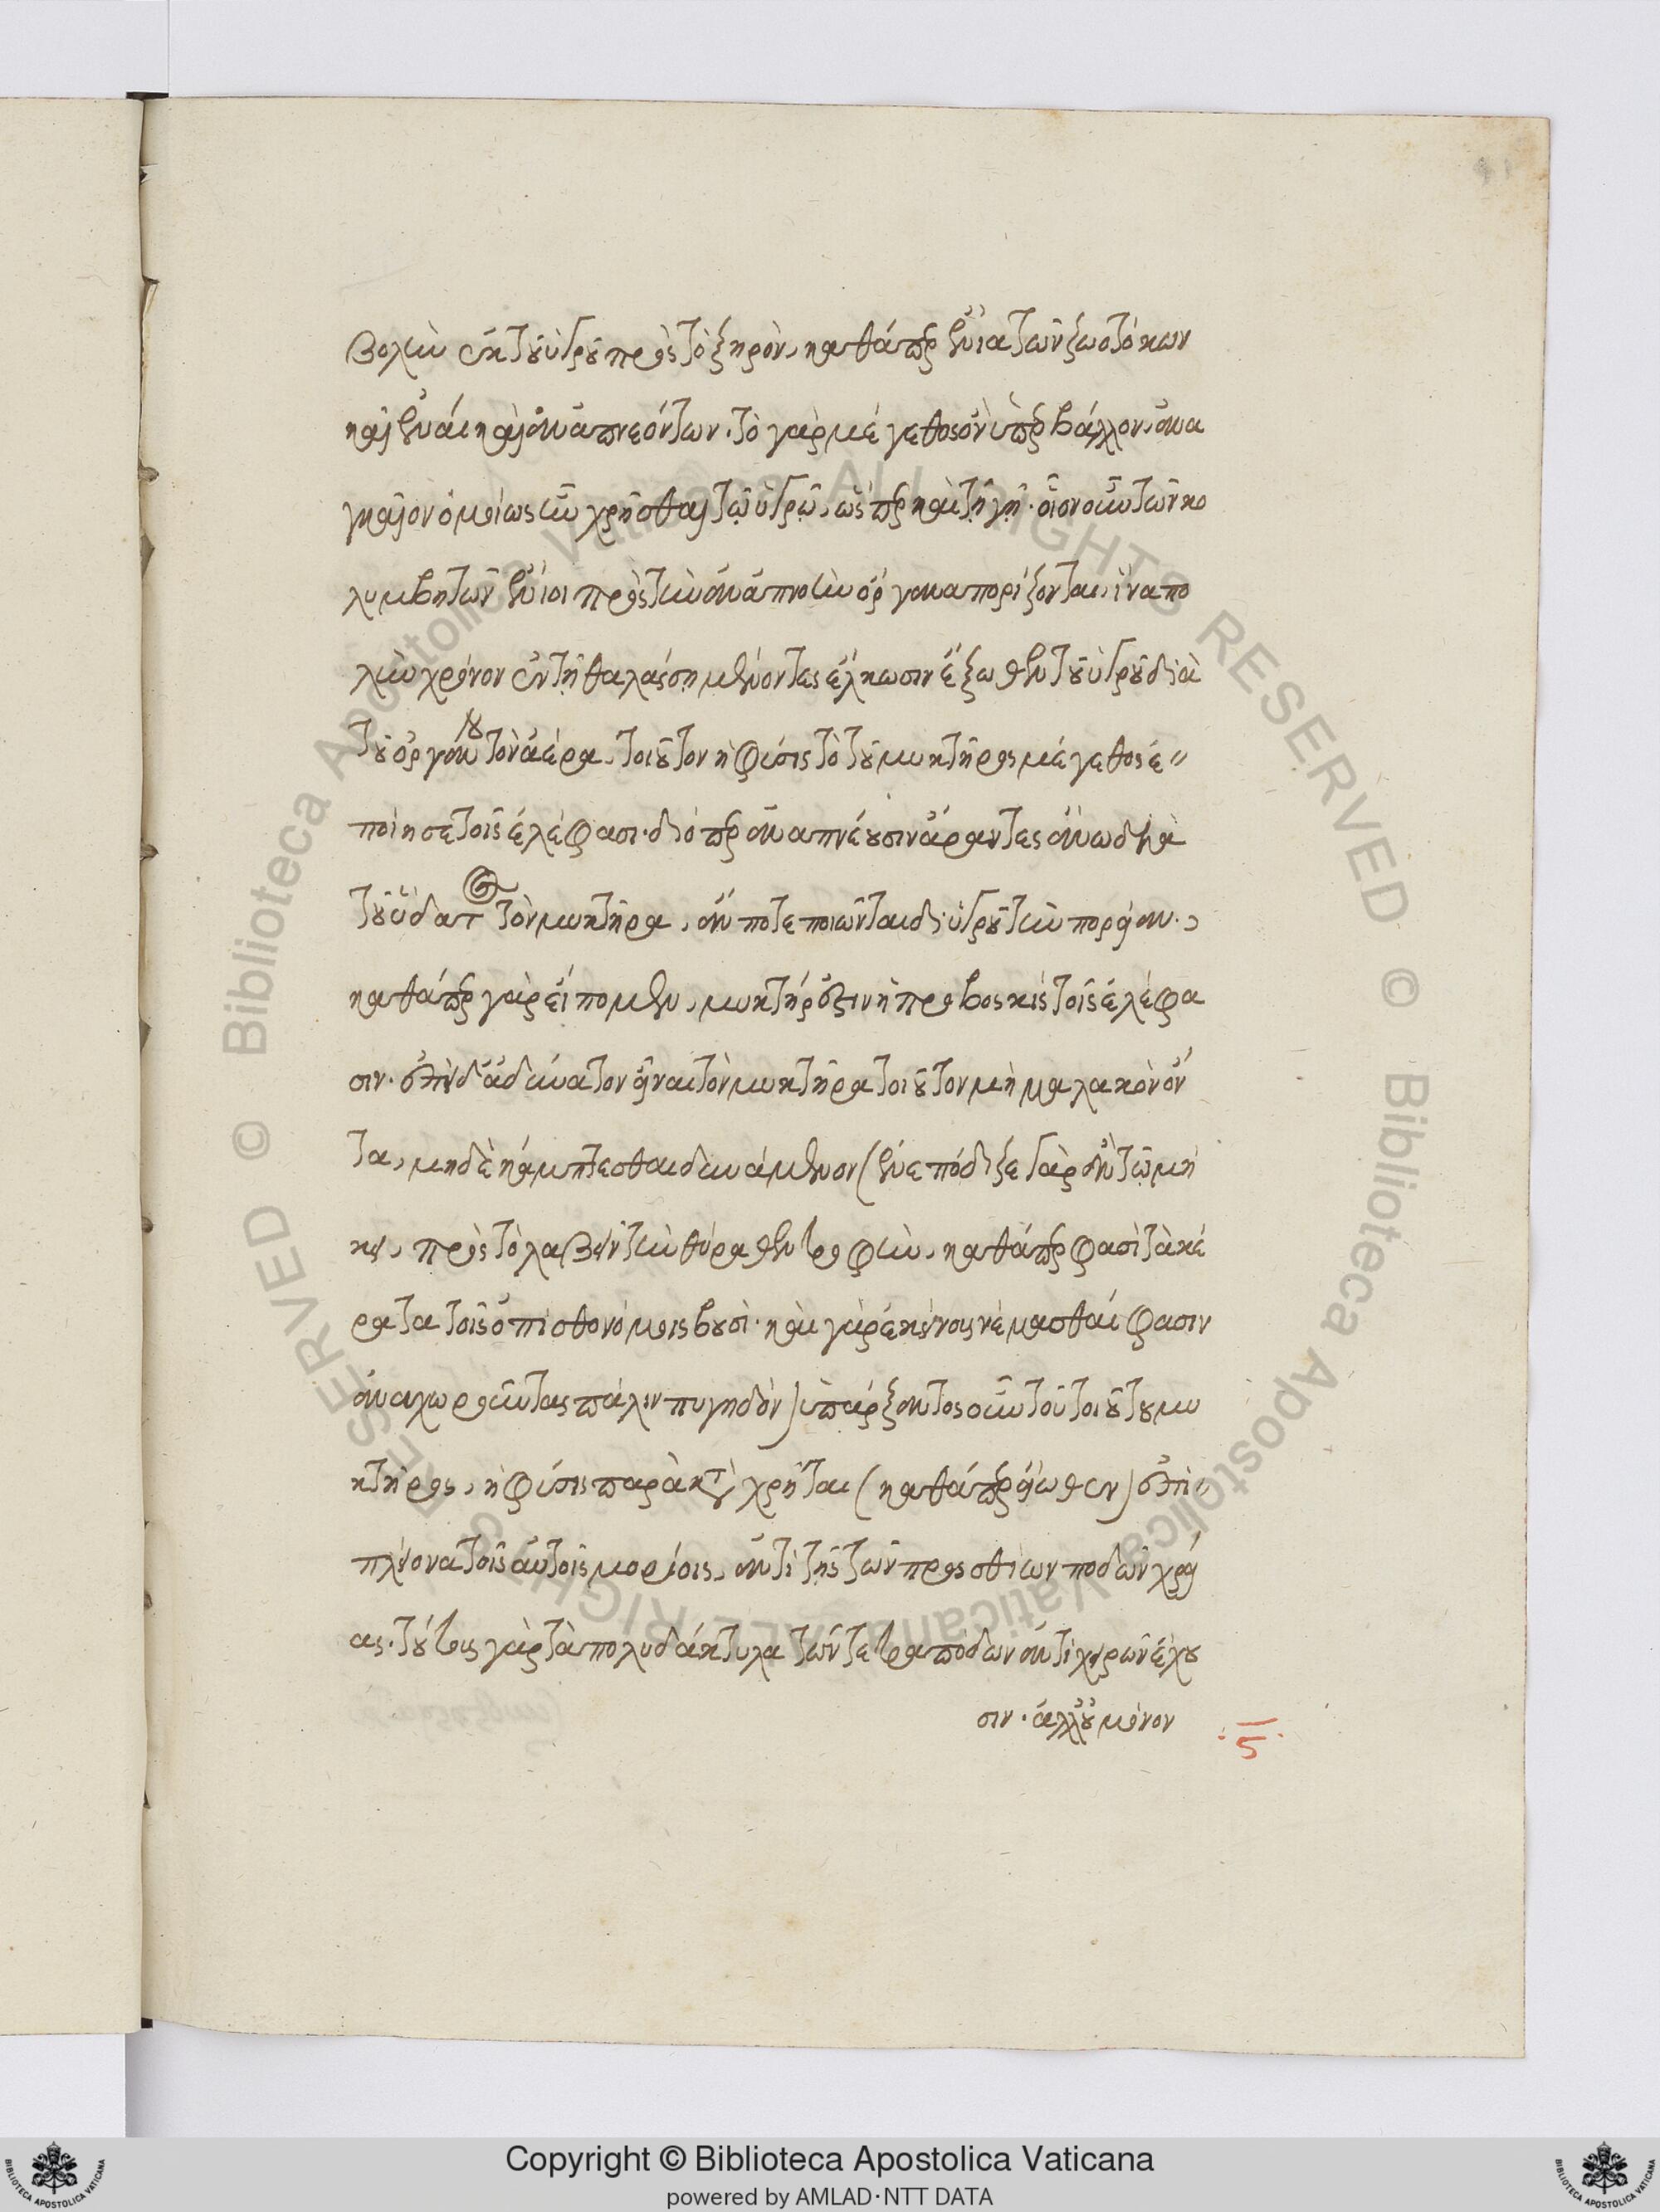 βολὴν ἐκ τοῦ ὑγροῦ πρὸς τὸ ξηρὸν, καθάπερ ἔνια τῶν ζωοτόκων
καὶ ἐναίμ καὶ ἀναπνεόντων. τὸ γὰρ μέγεθος ὂν ὑπερβάλλον, ἀνα
γκαῖον ὁμοίως ἦν χρῆσθαι τῷ ὑγρῷ, ὥσπερ καὶ τῇ γῇ. οἷον οὖν τῶν κο
λυμβητῶν ἔνιοι πρὸς τὴν ἀναπνοὴν ὄργανα πορίζονται, ἵνα πο
λὺν χρόνον ἐν τῇ θαλάσσῃ μένοντες ἕλκωσιν ἔξωθεν τοῦ ὑγροῦ διὰ
τοῦ ὀργάνου τὸν ἀέρα, τοιοῦτον ἡ φύσις τὸ τοῦ μυκτῆρος μέγεθος ἐ
ποίησε τοῖς ἐλέφασι. διόπερ ἀναπνέουσιν ἄραντες ἄνω διὰ
τοῦ ὕδατος τὸν μυκτῆρα, ἄν ποτε ποιῶνται δι' ὑγροῦ τὴν πορείαν.,
καθάπερ γὰρ εἴπομεν, μυκτήρ ἐστιν ἡ προβοσκὶς τοῖς ἐλέφα
σιν. ἐπεὶ δ' ἀδύνατον εἶναι τὸν μυκτῆρα τοιοῦτον μὴ μαλακὸν ὄν
τα, μηδὲ κάμπτεσθαι δυνάμενον (ἐνεπόδιζε γὰρ ἂν τῷ μή
κει, πρὸς τὸ λαβεῖν τὴν θύραθεν τροφὴν, καθάπερ φασὶ τὰ κέ
ρατα τοῖς ὀπισθονόμοις βουσὶ. καὶ γὰρ ἐκείνους νέμεσθαί φασιν
ἀναχωροῦντας πάλιν πυγηδὸν) ὑπάρξαντος οὖν τοῦ τοιούτου μυ
κτῆρος, ἡ φύσις παρακαταχρῆται (καθάπερ εἴωθεν) ἐπὶ
πλείονα τοῖς αὐτοῖς μορίοις, ἀντὶ τῆς τῶν προσθίων ποδῶν χρεί
ας. τούτους γὰρ τὰ πολυδάκτυλα τῶν τετραπόδων ἀντὶ χειρῶν ἔχου
σιν. ἀλλ' οὐ μόνον
ϛ
Copyright © Biblioteca Apostolica Vaticana
powered by AMLAD·NTT DATA